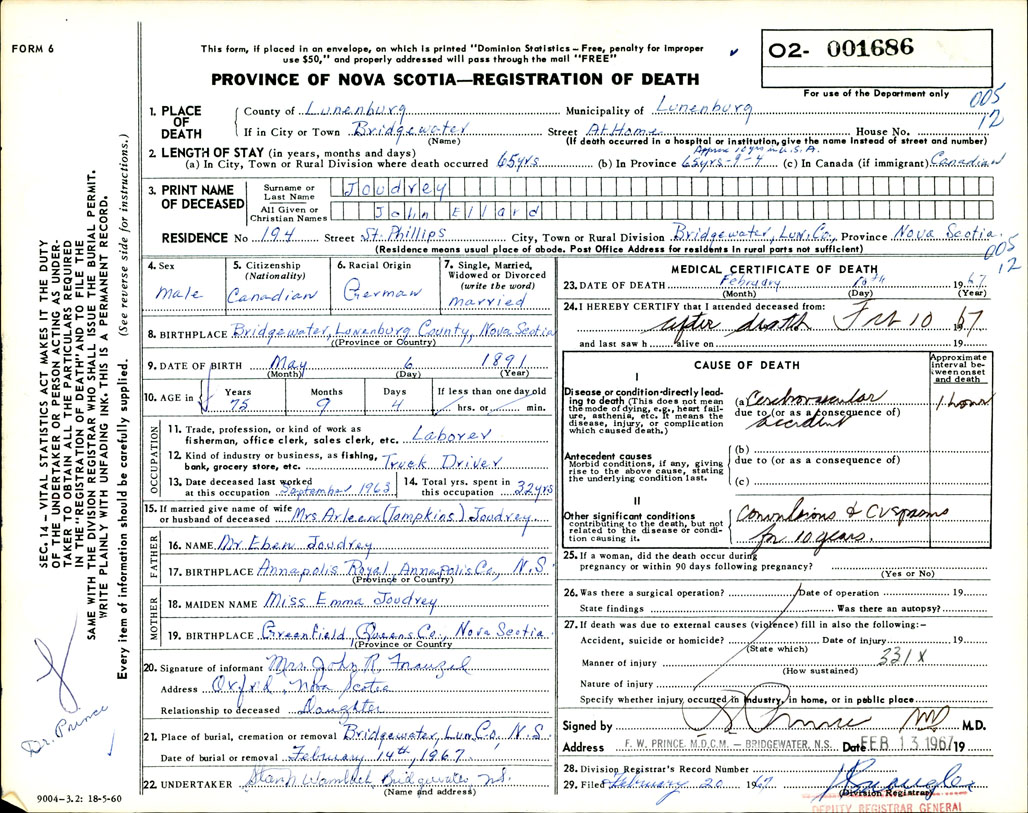 FORM 6
This form, if placed in an envelope, on which is printed "Dominion Statistics – Free, penalty for improper
use $50," and properly addressed will pass through the mail "FREE"
PROVINCE OF NOVA SCOTIA—REGISTRATION OF DEATH
O2- 001686
For use of the Department only
005
12
1. PLACE OF DEATH
County of Lunenburg Municipality of Lunenburg
If in City or Town Bridgewater Street At Home House No.
(Name) (If death occurred in a hospital or institution, give the name instead of street and number)
2. LENGTH OF STAY (in years, months and days) Approx 10 yrs in U.S.A.
(a) In City, Town or Rural Division where death occurred 65yrs (b) In Province 65yrs-9-4 (c) In Canada (if immigrant) Canadian
3. PRINT NAME OF DECEASED
Surname or Last Name Joudrey
All Given or Christian Names John Ellard
RESIDENCE No 194 Street St. Phillips City, Town or Rural Division Bridgewater, Lun. Co., Province Nova Scotia.
(Residence means usual place of abode. Post Office Address for residents in rural parts not sufficient)
005
12
4. Sex
male
5. Citizenship
(Nationality)
Canadian
6. Racial Origin
German
7. Single, Married,
Widowed or Divorced
(write the word)
married
8. BIRTHPLACE Bridgewater, Lunenburg County, Nova Scotia
((Province or Country)
9. DATE OF BIRTH May 6 1891
(Month) (Day) (Year)
10. AGE in
Years Months Days If less than one day old
75 9 4 hrs. or min.
OCCUPATION
11. Trade, profession, or kind of work as
fisherman, office clerk, sales clerk, etc. Laborer
12. Kind of industry or business, as fishing,
bank, grocery store, etc. Truck Driver
13. Date deceased last worked
at this occupation September 1963
14. Total yrs. spent in
this occupation 32yrs
15. If married give name of wife
or husband of deceased Mrs Arleen (Tompkins) Joudrey.
FATHER
16. NAME Mr Eben Joudrey
17. BIRTHPLACE Annapolis Royal, Annapolis Co., N.S.
(Province or Country)
MOTHER
18. MAIDEN NAME Miss Emma Joudrey
19. BIRTHPLACE Greenfield, Queens Co., Nova Scotia
(Province or Country)
20. Signature of informant Mrs. John R.
Address Oxford, Nova Scotia
Relationship to deceased Daughter
21. Place of burial, cremation or removal Bridgewater, Lun Co. N.S.
Date of burial or removal February 14th, 1967.
22. UNDERTAKER Bridgewater N.S.
(Name and address)
9004—3.2: 18-5-60
MEDICAL CERTIFICATE OF DEATH
23. DATE OF DEATH February 10th 1967
(Month) (Day) (Year)
24. I HEREBY CERTIFY that I attended deceased from:
after death Feb 10 1967
and last saw h alive on 19
CAUSE OF DEATH
Approximate
interval be-
tween onset
and death
I
Disease or condition directly lead-
ing to death (This does not mean
the mode of dying, e.g., heart fail-
ure, asthenia, etc. It means the
disease, injury, or complication
which caused death.)
(a) Cerebrovascular 1 hour
due to (or as a consequence of)
accident
Antecedent causes
Morbid conditions, if any, giving
rise to the above cause, stating
the underlying condition last.
(b)
due to (or as a consequence of)
(c)
II
Other significant conditions
contributing to the death, but not
related to the disease or condi-
tion causing it.
Convulsions & CV spasms
for 10 years.
25. If a woman, did the death occur during
pregnancy or within 90 days following pregnancy?
(Yes or No)
26. Was there a surgical operation? Date of operation 19
State findings Was there an autopsy?
27. If death was due to external causes (violence) fill in also the following:—
Accident, suicide or homicide? Date of injury 19
(State which)
331X
Manner of injury
(How sustained)
Nature of injury
Specify whether injury occurred in industry, in home, or in public place
Signed by Prince MD M.D.
Address F. W. PRINCE, M.D.C.M. — BRIDGEWATER, N.S. Date FEB 13 1967 19
28. Division Registrar's Record Number
29. Filed February 20 1967
(Division Registrar)
DEPUTY REGISTRAR GENERAL
SEC. 14 — VITAL STATISTICS ACT MAKES IT THE DUTY
OF THE UNDERTAKER OR PERSON ACTING AS UNDER-
TAKER TO OBTAIN ALL THE PARTICULARS REQUIRED
IN THE "REGISTRATION OF DEATH" AND TO FILE THE
SAME WITH THE DIVISION REGISTRAR WHO SHALL ISSUE THE BURIAL PERMIT.
WRITE PLAINLY WITH UNFADING INK. THIS IS A PERMANENT RECORD.
Every item of information should be carefully supplied. (See reverse side for instructions.)
Dr. Prince